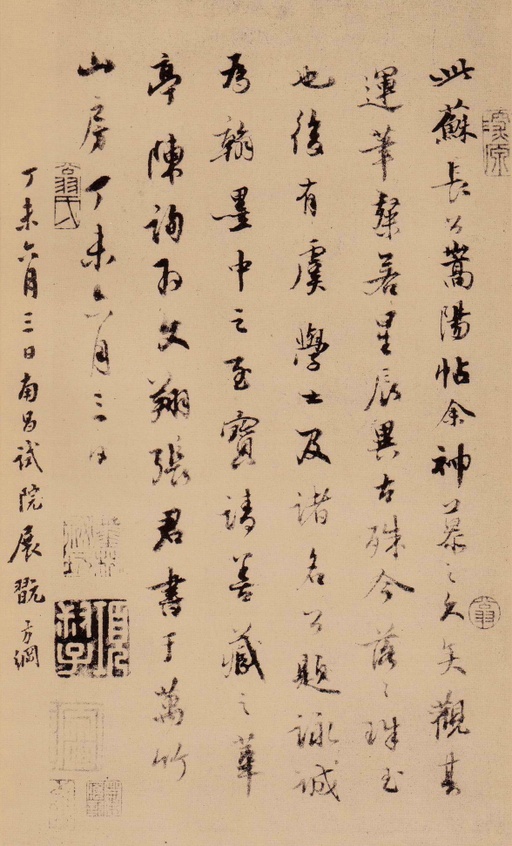 此蘇長公嵩陽帖余神慕之久矣觀其
運筆粲若星辰異古殊今落落珠玉
也後有虞學士及諸名公題詠誠
為翰墨中之至寶請善藏之華
亭陳詢為文翔張君書于萬竹
山房丁未六月三日
丁未六月三日南昌試院展翫 方綱
翁氏
項叔子